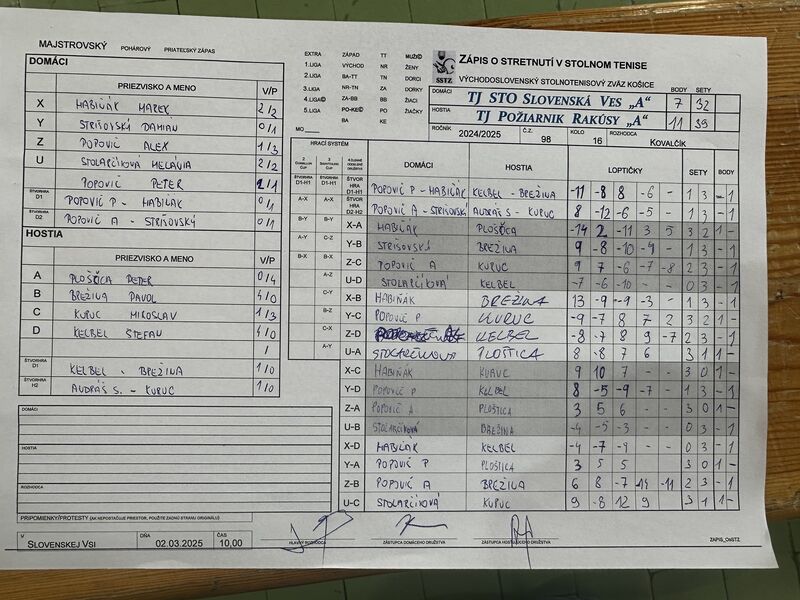 MAJSTROVSKÝ POHÁROVÝ PRIATEĽSKÝ ZÁPAS
DOMÁCI
PRIEZVISKO A MENO V/P
X HABIŇÁK MAREK 2/2
Y STRIŠOVSKÝ DAMIÁN 0/1
Z POPOVIČ ALEX 1/3
U STOLARČÍKOVÁ MELÁNIA 2/2
POPOVIČ PETER 2/1
ŠTVORHRA D1 POPOVIČ P - HABIŇÁK 0/1
ŠTVORHRA D2 POPOVIČ A - STRIŠOVSKÝ 0/1
HOSTIA
PRIEZVISKO A MENO V/P
A PLOŠTICA PETER 0/4
B BREŽINA PAVOL 4/0
C KURUC MIROSLAV 1/3
D KELBEL ŠTEFAN 4/0
/
ŠTVORHRA D1 KELBEL - BREŽINA 1/0
ŠTVORHRA H2 AUDRÁŠ S. - KURUC 1/0
DOMÁCI
HOSTIA
ROZHODCA
PRIPOMIENKY/PROTESTY (AK NEPOSTAČUJE PRIESTOR, POUŽITE ZADNÚ STRANU ORIGINÁLU)
V SLOVENSKEJ VSI DŇA 02.03.2025 ČAS 10,00
EXTRA ZÁPAD TT MUŽI
1.LIGA VÝCHOD NR ŽENY
2.LIGA BA-TT TN DORCI
3.LIGA NR-TN ZA DORKY
4.LIGA ZA-BB BB ŽIACI
5.LIGA PO-KE PO ŽIAČKY
BA KE
MO
SSTZ
ZÁPIS O STRETNUTÍ V STOLNOM TENISE
VÝCHODOSLOVENSKÝ STOLNOTENISOVÝ ZVÄZ KOŠICE
BODY SETY
DOMÁCI TJ STO SLOVENSKÁ VES „A“ 7 32
HOSTIA TJ POŽIARNIK RAKÚSY „A“ 11 39
ROČNÍK 2024/2025 Č.Z. 98 KOLO 16 ROZHODCA KOVALČÍK
HRACÍ SYSTÉM DOMÁCI HOSTIA LOPTIČKY SETY BODY
ŠTVORHRA D1-H1 POPOVIČ P - HABIŇÁK KELBEL - BREŽINA -11 -8 8 -6 - 1 3 - 1
ŠTVORHRA D2-H2 POPOVIČ A - STRIŠOVSKÝ AUDRÁŠ S - KURUC 8 -12 -6 -5 - 1 3 - 1
A-X X-A HABIŇÁK PLOŠTICA -14 2 -11 3 5 3 2 1 -
B-Y Y-B STRIŠOVSKÝ BREŽINA 9 -8 -10 -9 - 1 3 - 1
C-Z Z-C POPOVIČ A KURUC 9 7 -6 -7 -8 2 3 - 1
U-D STOLARČÍKOVÁ KELBEL -7 -6 -10 - - 0 3 - 1
X-B HABIŇÁK BREŽINA 13 -9 -9 -3 - 1 3 - 1
Y-C POPOVIČ P KURUC -9 -7 8 7 2 3 2 1 -
Z-D KELBEL -8 -7 8 9 -7 2 3 - 1
U-A STOLARČÍKOVÁ PLOŠTICA 8 -8 7 6 - 3 1 1 -
X-C HABIŇÁK KURUC 9 10 7 - - 3 0 1 -
Y-D POPOVIČ P KELBEL 8 -5 -9 -7 - 1 3 - 1
Z-A POPOVIČ A PLOŠTICA 3 5 6 - - 3 0 1 -
U-B STOLARČÍKOVÁ BREŽINA -4 -5 -3 - - 0 3 - 1
X-D HABIŇÁK KELBEL -4 -7 -9 - - 0 3 - 1
Y-A POPOVIČ P PLOŠTICA 3 5 5 3 0 1 -
Z-B POPOVIČ A BREŽINA 6 8 -7 -14 -11 2 3 - 1
U-C STOLARČÍKOVÁ KURUC 9 -8 12 9 3 1 1 -
HLAVNÝ ROZHODCA ZÁSTUPCA DOMÁCEHO DRUŽSTVA ZÁSTUPCA HOSŤUJÚCEHO DRUŽSTVA ZÁPIS_OSSTZ